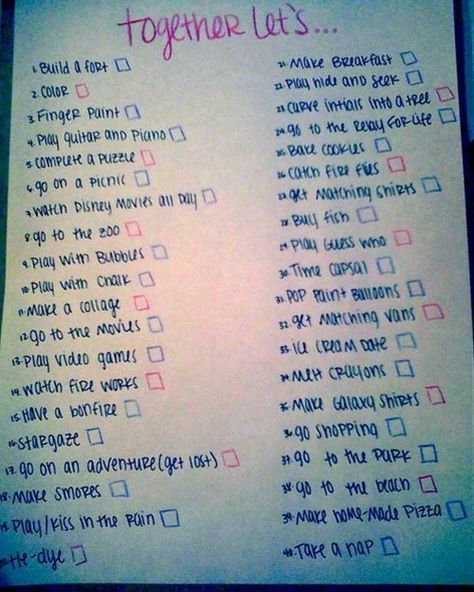 Together Let's...
1. Build a fort
2. Color
3. Finger Paint
4. Play guitar and Piano
5. Complete a Puzzle
6. go on a picnic
7. Watch Disney Movies all Day
8. go to the zoo
9. Play with Bubbles
10. Play with Chalk
11. Make a collage
12. go to the movies
13. Play video games
14. Watch fire works
15. Have a bonfire
16. Stargaze
17. go on an adventure (get lost)
18. Make smores
19. Play/kiss in the Rain
20. tie-dye
21. Make Breakfast
22. Play hide and seek
23. Curve intials into a tree
24. go to the Relay For Life
25. Bake cookies
26. Catch fire flies
27. get Matching shirts
28. Buy fish
29. Play Guess who
30. Time capsal
31. POP Paint Balloons
32. get Matching vans
33. Ice Cream Date
34. Melt crayons
35. Make Galaxy shirts
36. go shopping
37. go to the Park
38. go to the beach
39. Make home-made Pizza
40. Take a nap